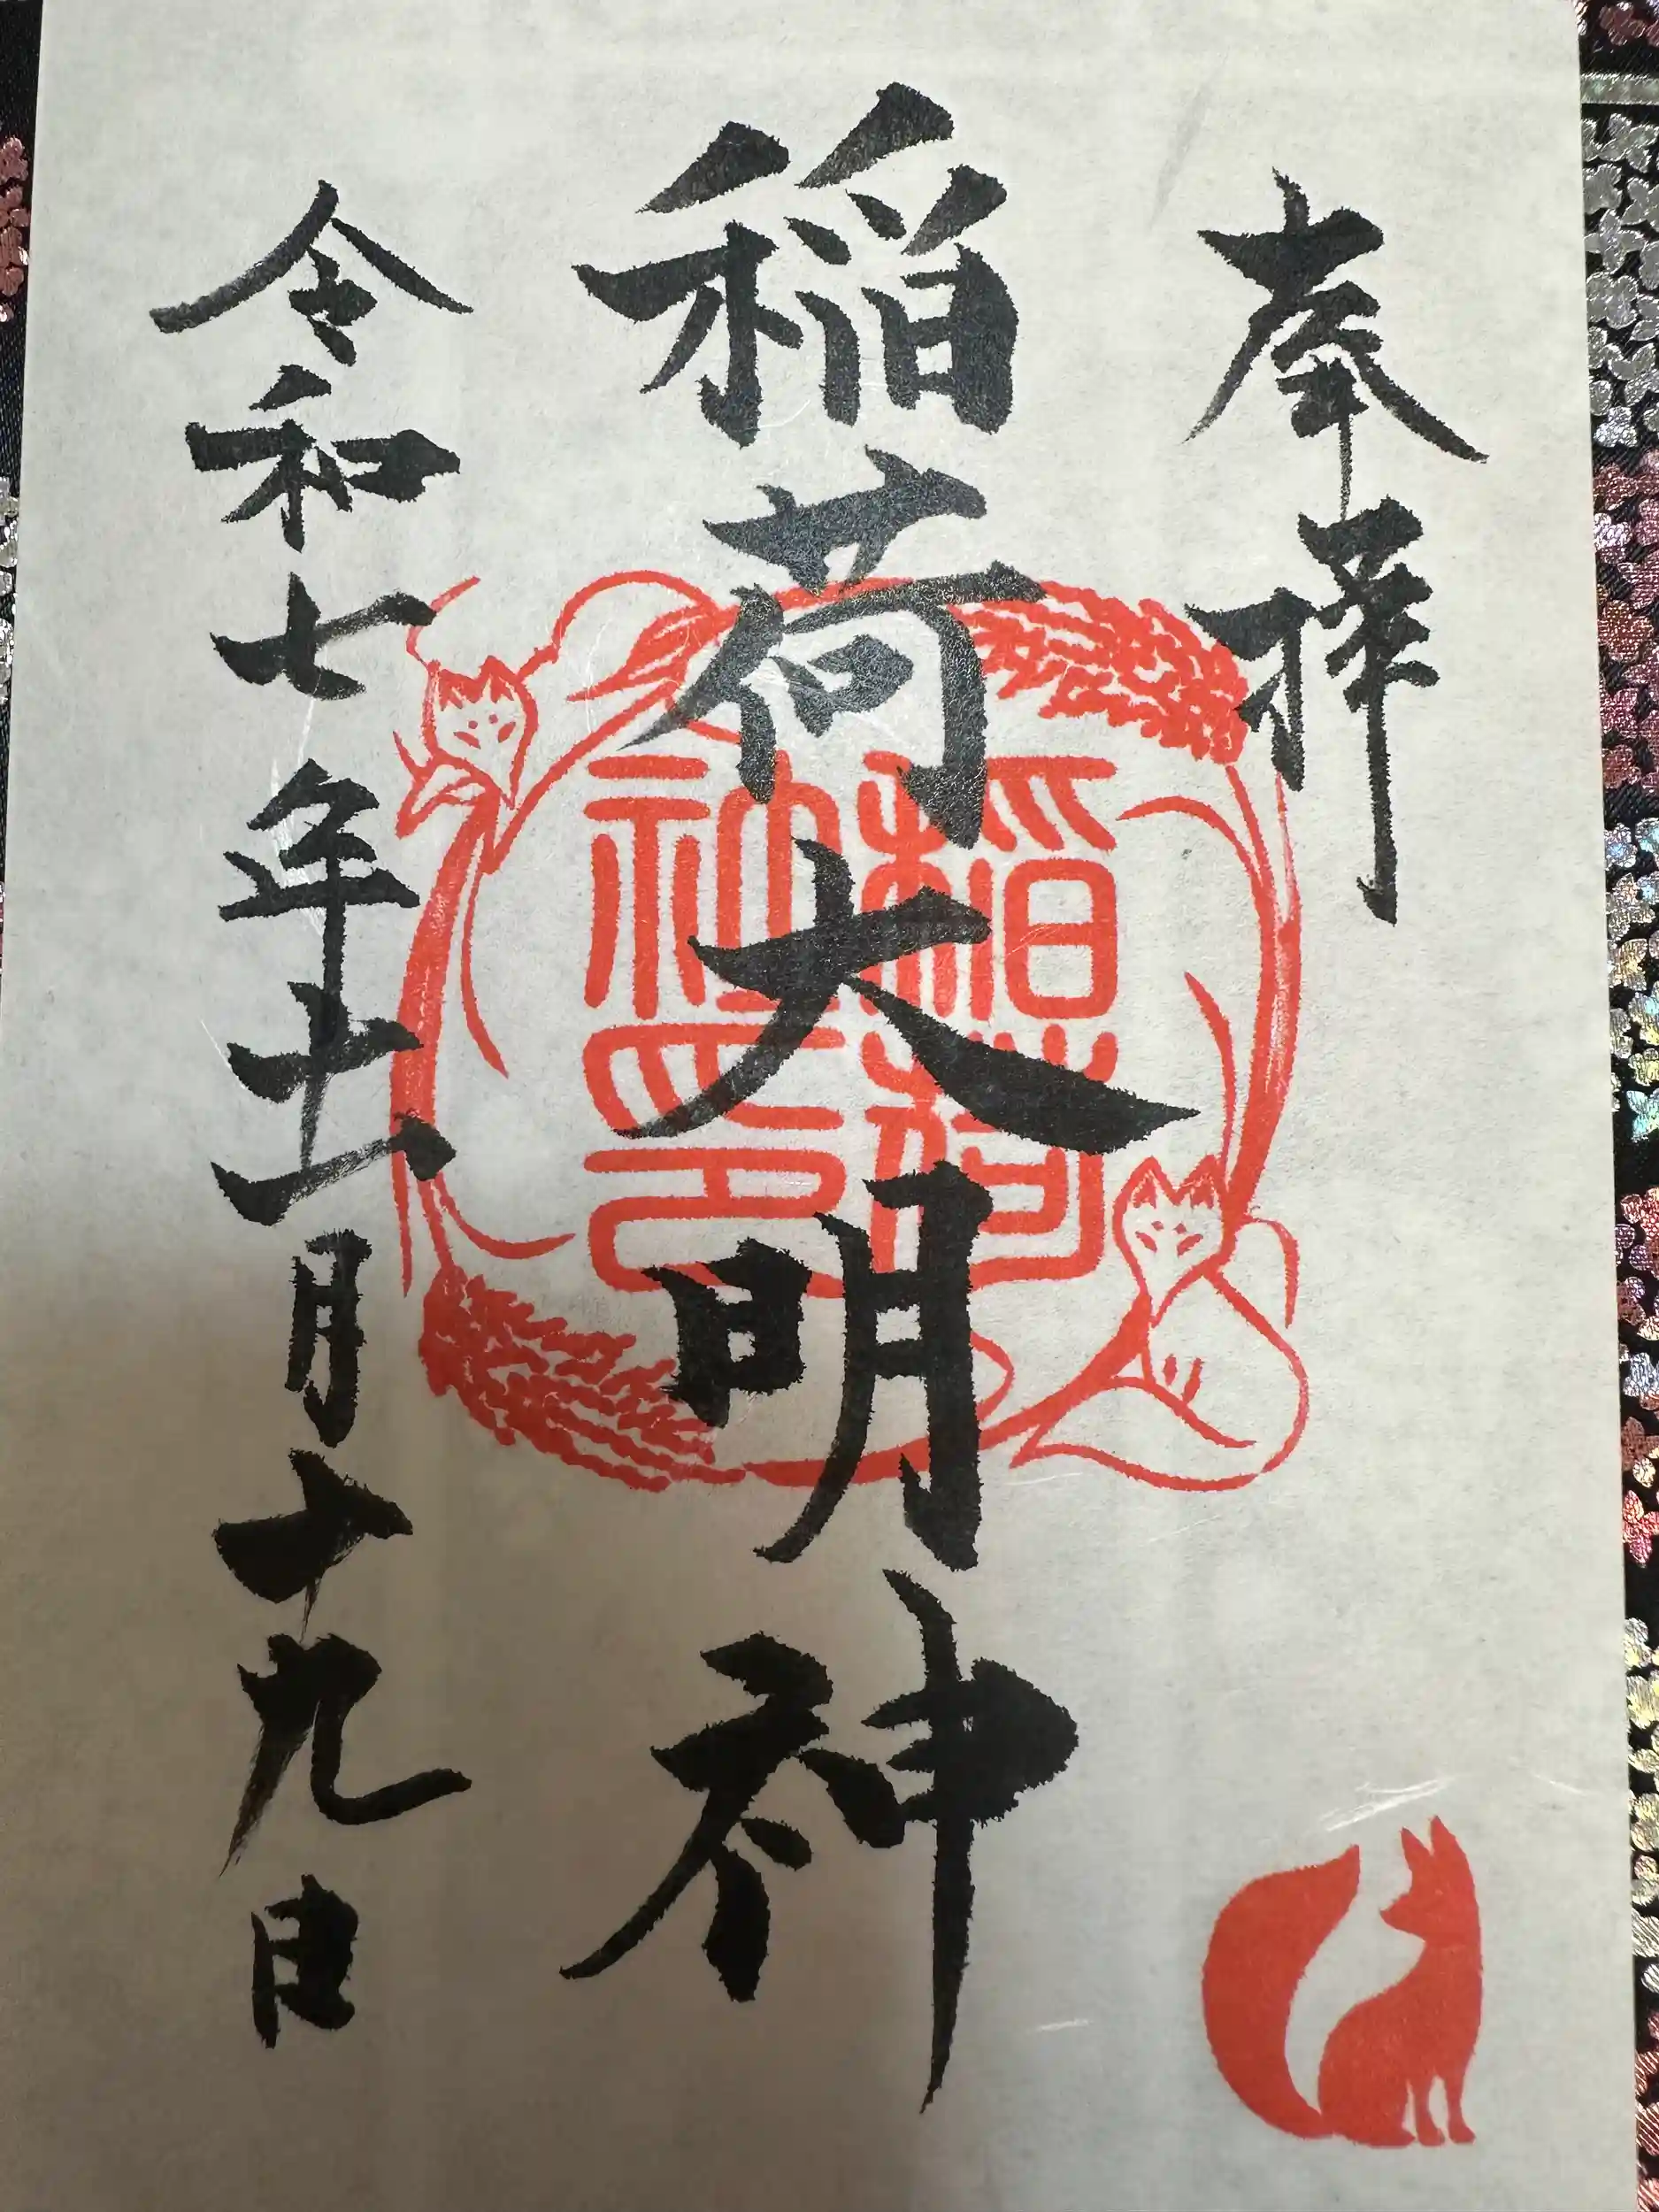 奉拝
稲荷大明神
稲荷神印
令和七年十一月十九日